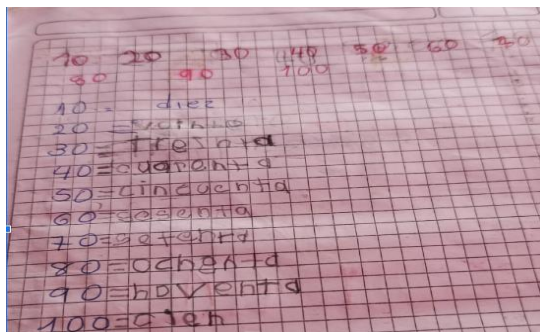 10 20 30 40 50 60 70
80 90 100
10 = diez
20 = veinte
30 = treinta
40 = cuarenta
50 = cincuenta
60 = sesenta
70 = setenta
80 = ochenta
90 = noventa
100 = cien